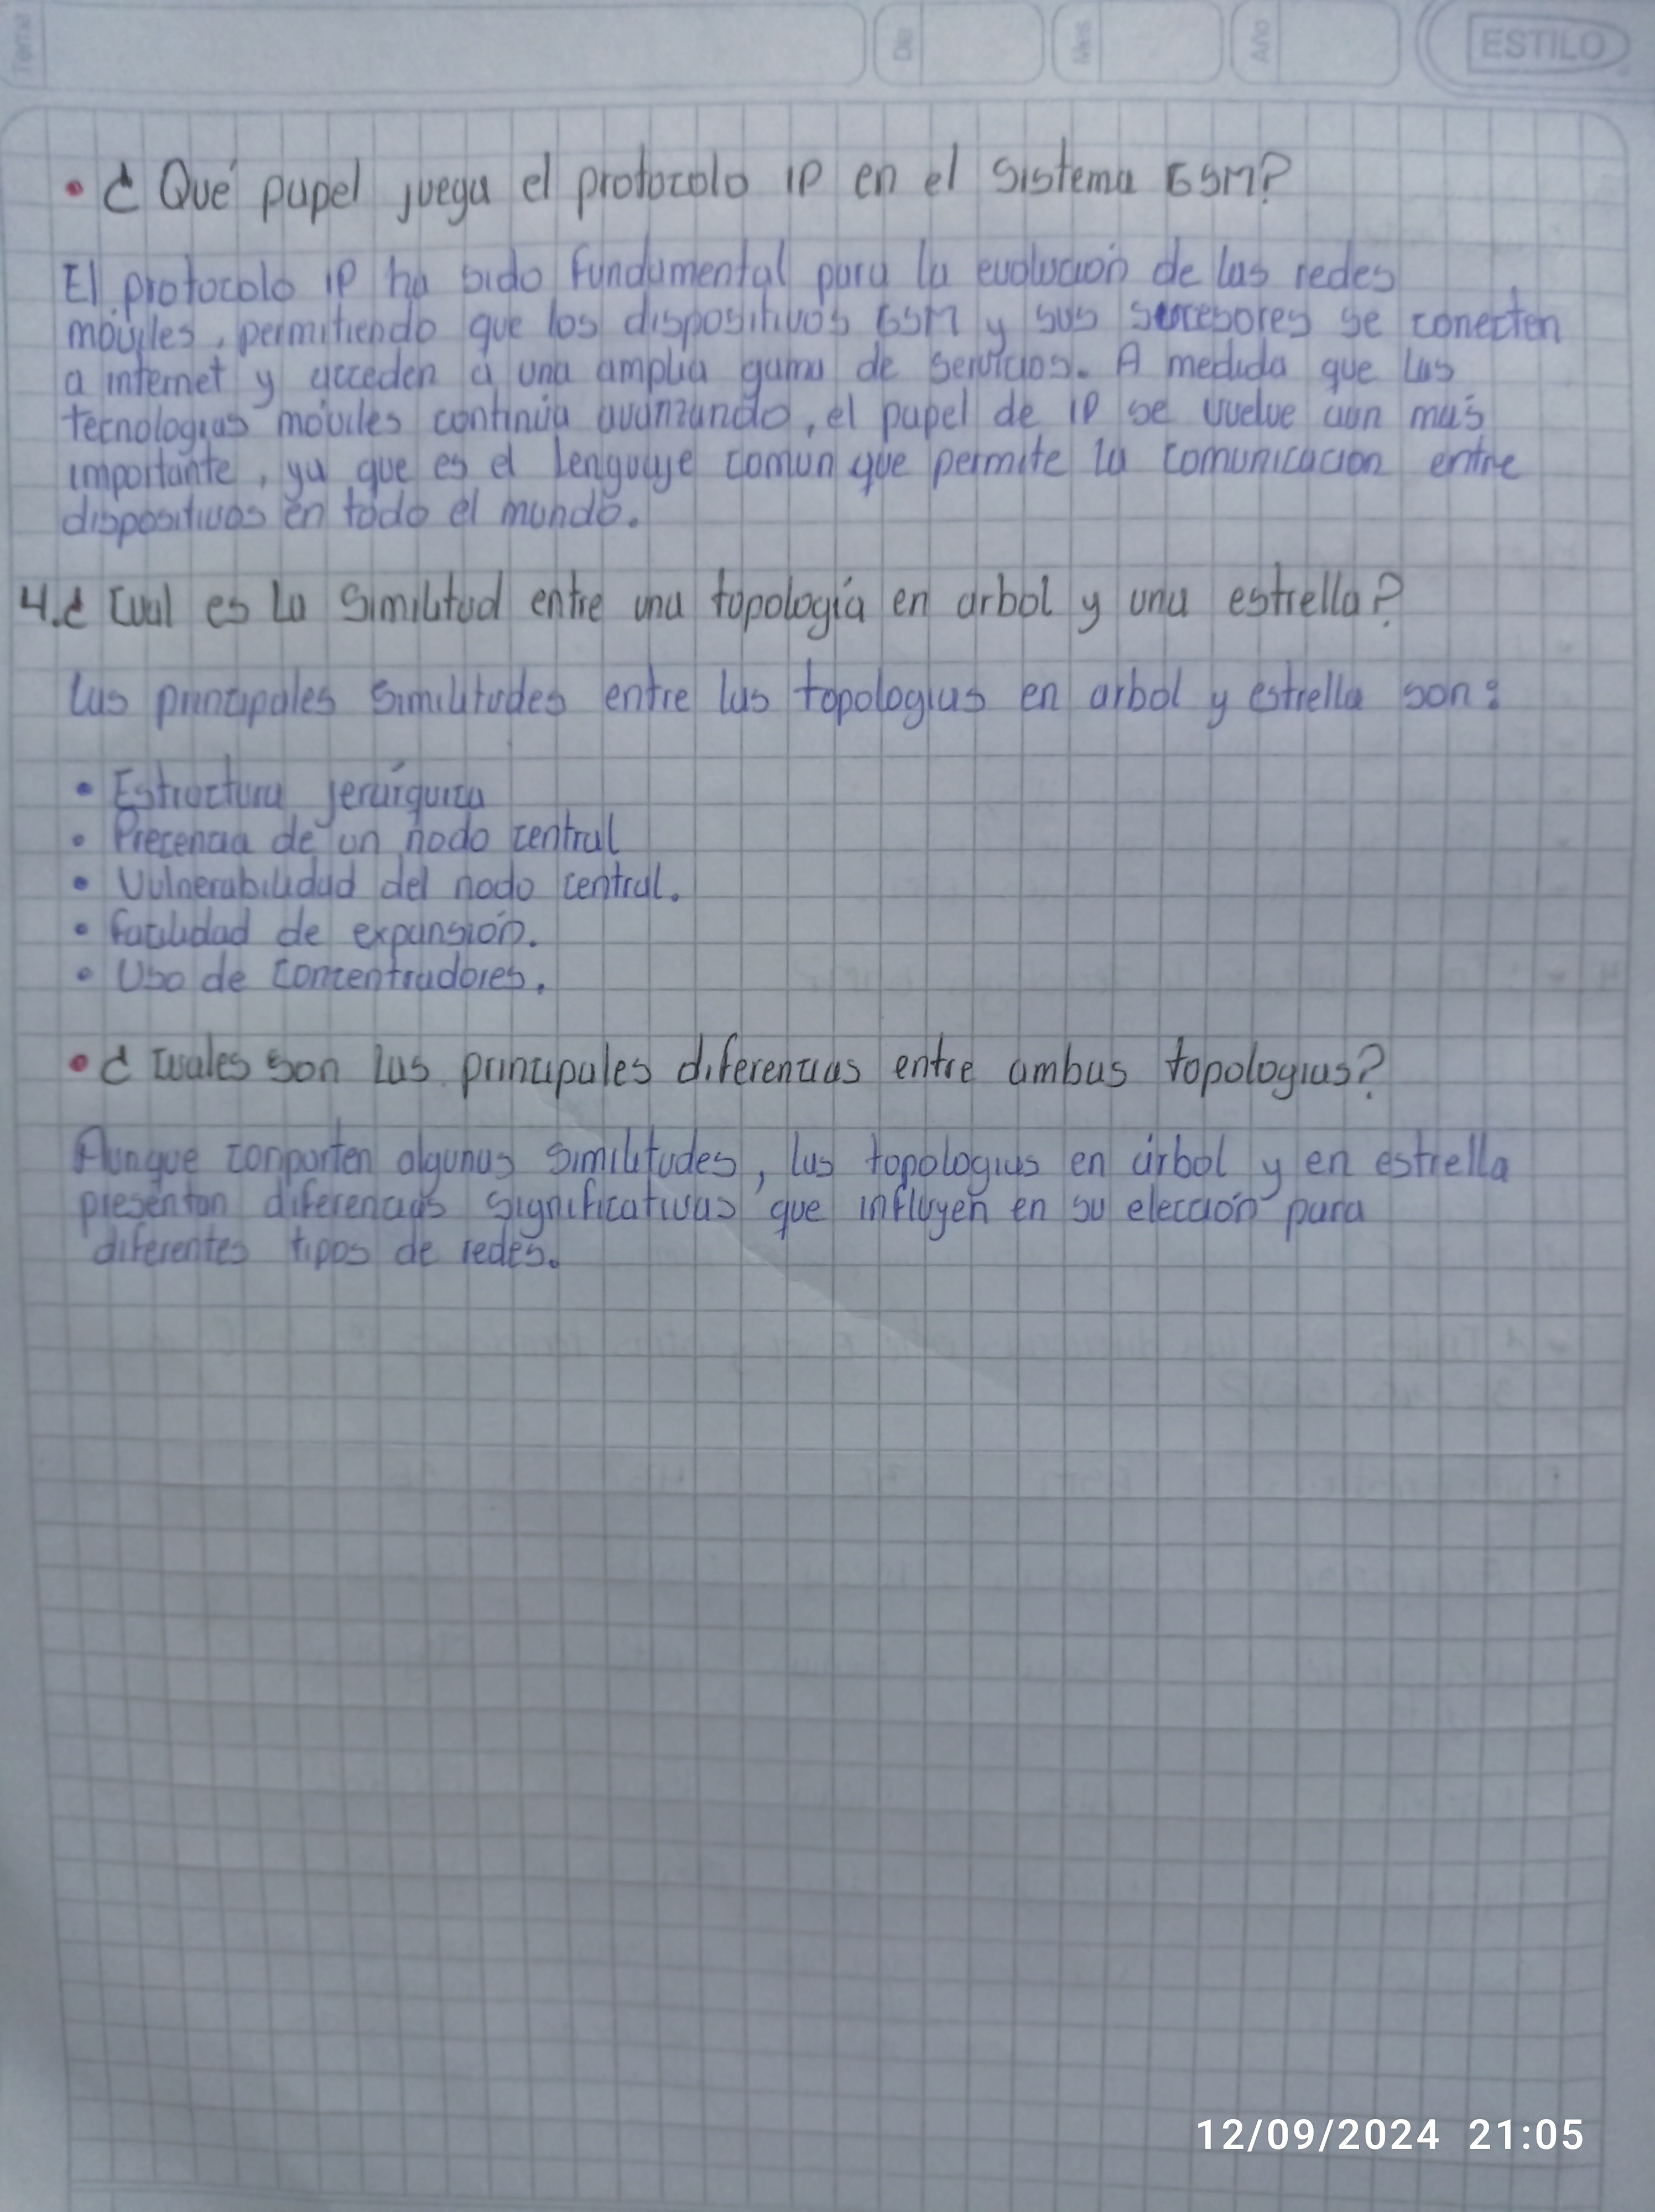 Tema
Día
Mes
Año
ESTILO
• ¿Qué papel juega el protocolo IP en el sistema GSM?
El protocolo IP ha sido fundamental para la evolución de las redes
moviles, permitiendo que los dispositivos GSM y sus sucesores se conecten
a internet y acceden a una amplia gama de servicios. A medida que las
tecnologias móviles continúa avanzando, el papel de IP se vuelve aun más
importante, ya que es el lenguaje comun que permite la comunicacion entre
dispositivos en todo el mundo.
4. ¿Cual es la similitud entre una topología en arbol y una estrella?
Las principales similitudes entre las topologias en arbol y estrella son:
• Estructura jerárquica
• Precencia de un nodo central
• Vulnerabilidad del nodo central.
• Facilidad de expansión.
• Uso de concentradores.
• ¿Cuales son las principales diferencias entre ambas topologias?
Aunque conporten algunas similitudes, las topologias en árbol y en estrella
presentan diferencias significativas que influyen en su elección para
diferentes tipos de redes.
12/09/2024 21:05